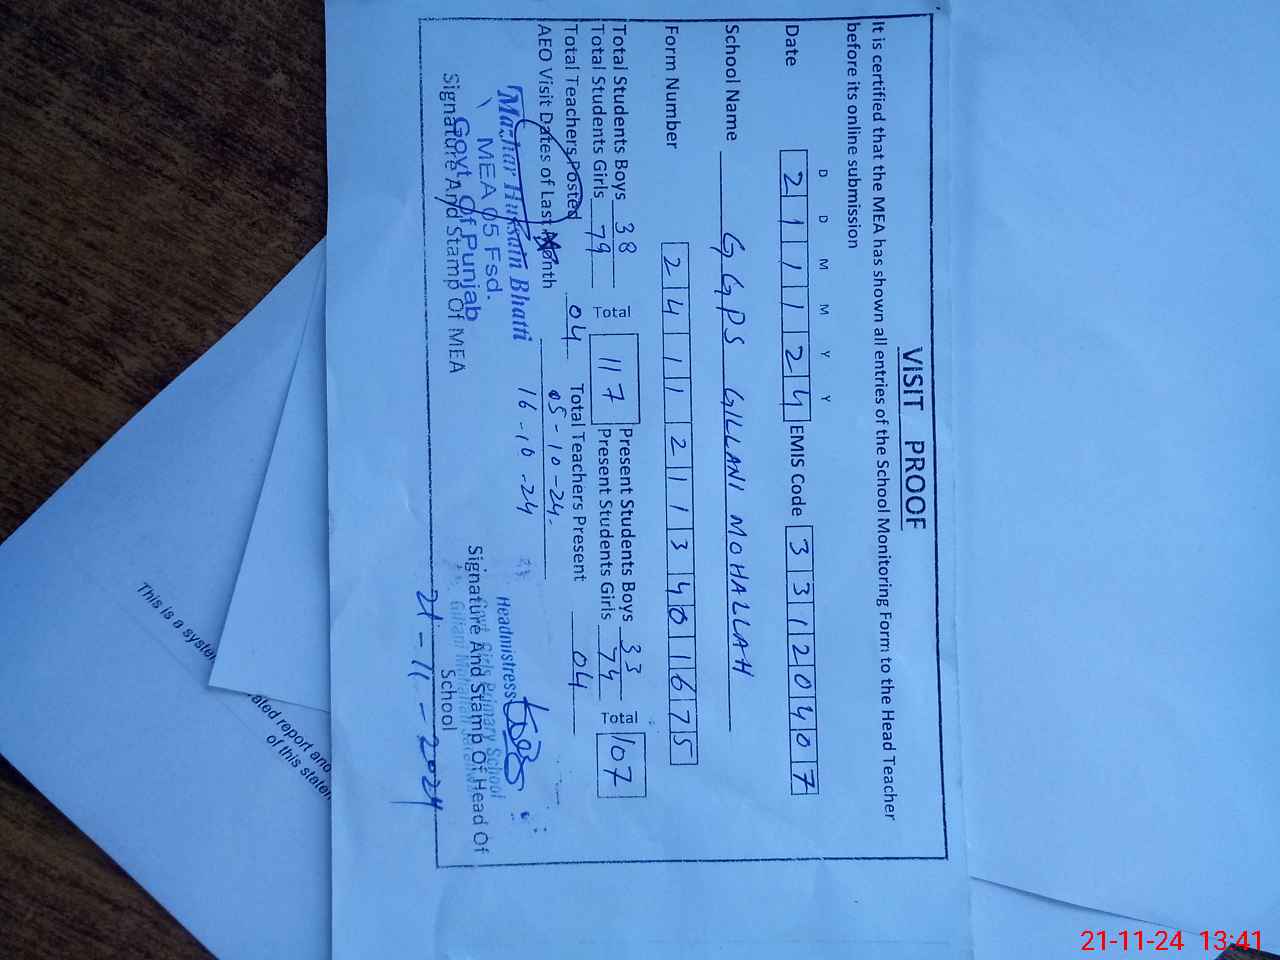 VISIT PROOF
It is certified that the MEA has shown all entries of the School Monitoring Form to the Head Teacher
before its online submission
D D M M Y Y
Date 2 1 1 1 2 4 EMIS Code 3 3 1 2 0 4 0 7
School Name GGPS GILLANI MOHALLAH
Form Number 2 4 1 1 2 1 1 3 4 0 1 6 7 5
Total Students Boys 38 Total 117 Present Students Boys 33 Total 107
Total Students Girls 79 Present Students Girls 74
Total Teachers Posted 04 Total Teachers Present 04
AEO Visit Dates of Last Month 05-10-24.
16-10-24
Mazhar Hussain Bhatti
MEA 05 Fsd.
Govt. Of Punjab
Signature And Stamp Of MEA
Headmistress
Govt. Girls Primary School
Gillani Mohallah
Signature And Stamp Of Head Of
School
21-11-2024
This is a system
ated report and
of this staten
21-11-24 13:41